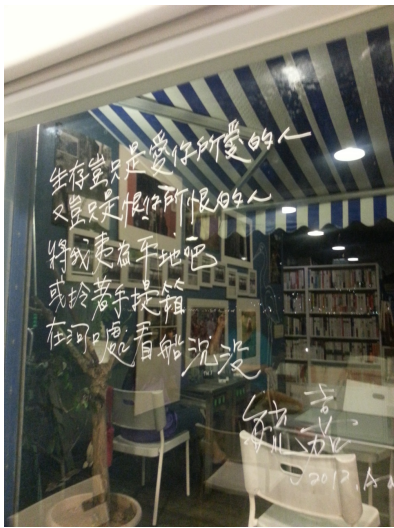 生存豈只是愛你所愛的人
又豈只是恨你所恨的人
將我夷為平地吧
或拎著手提箱
在河口處看船沉沒
毓嘉
2012.